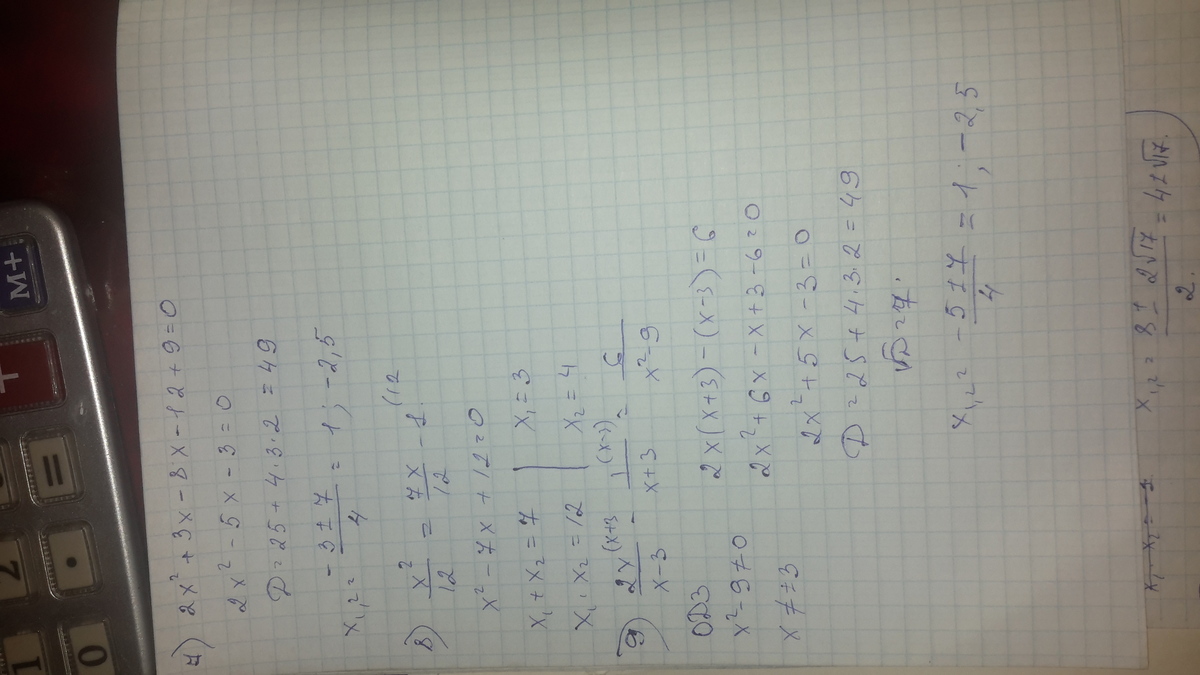 7) 2x² + 3x - 8x - 12 + 9 = 0
2x² - 5x - 3 = 0
D = 25 + 4·3·2 = 49
x₁,₂ = (-3 ± 7)/4 = 1; -2,5
8) x²/12 = 7x/12 - 1. (12
x² - 7x + 12 = 0
x₁ + x₂ = 7 | x₁ = 3
x₁ · x₂ = 12 | x₂ = 4
9) 2x (x+3/(x-3) - 1 (x-3)/(x+3) = 6/(x²-9)
ОДЗ
x² - 9 ≠ 0
x ≠ ±3
2x(x+3) - (x-3) = 6
2x² + 6x - x + 3 - 6 = 0
2x² + 5x - 3 = 0
D = 25 + 4·3·2 = 49
√D = 7.
x₁,₂ = (-5 ± 7)/4 = 1; -2,5
x₁,₂ = (8 ± 2√17)/2. = 4 ± √17.
M+
+
=
2
·
1
0